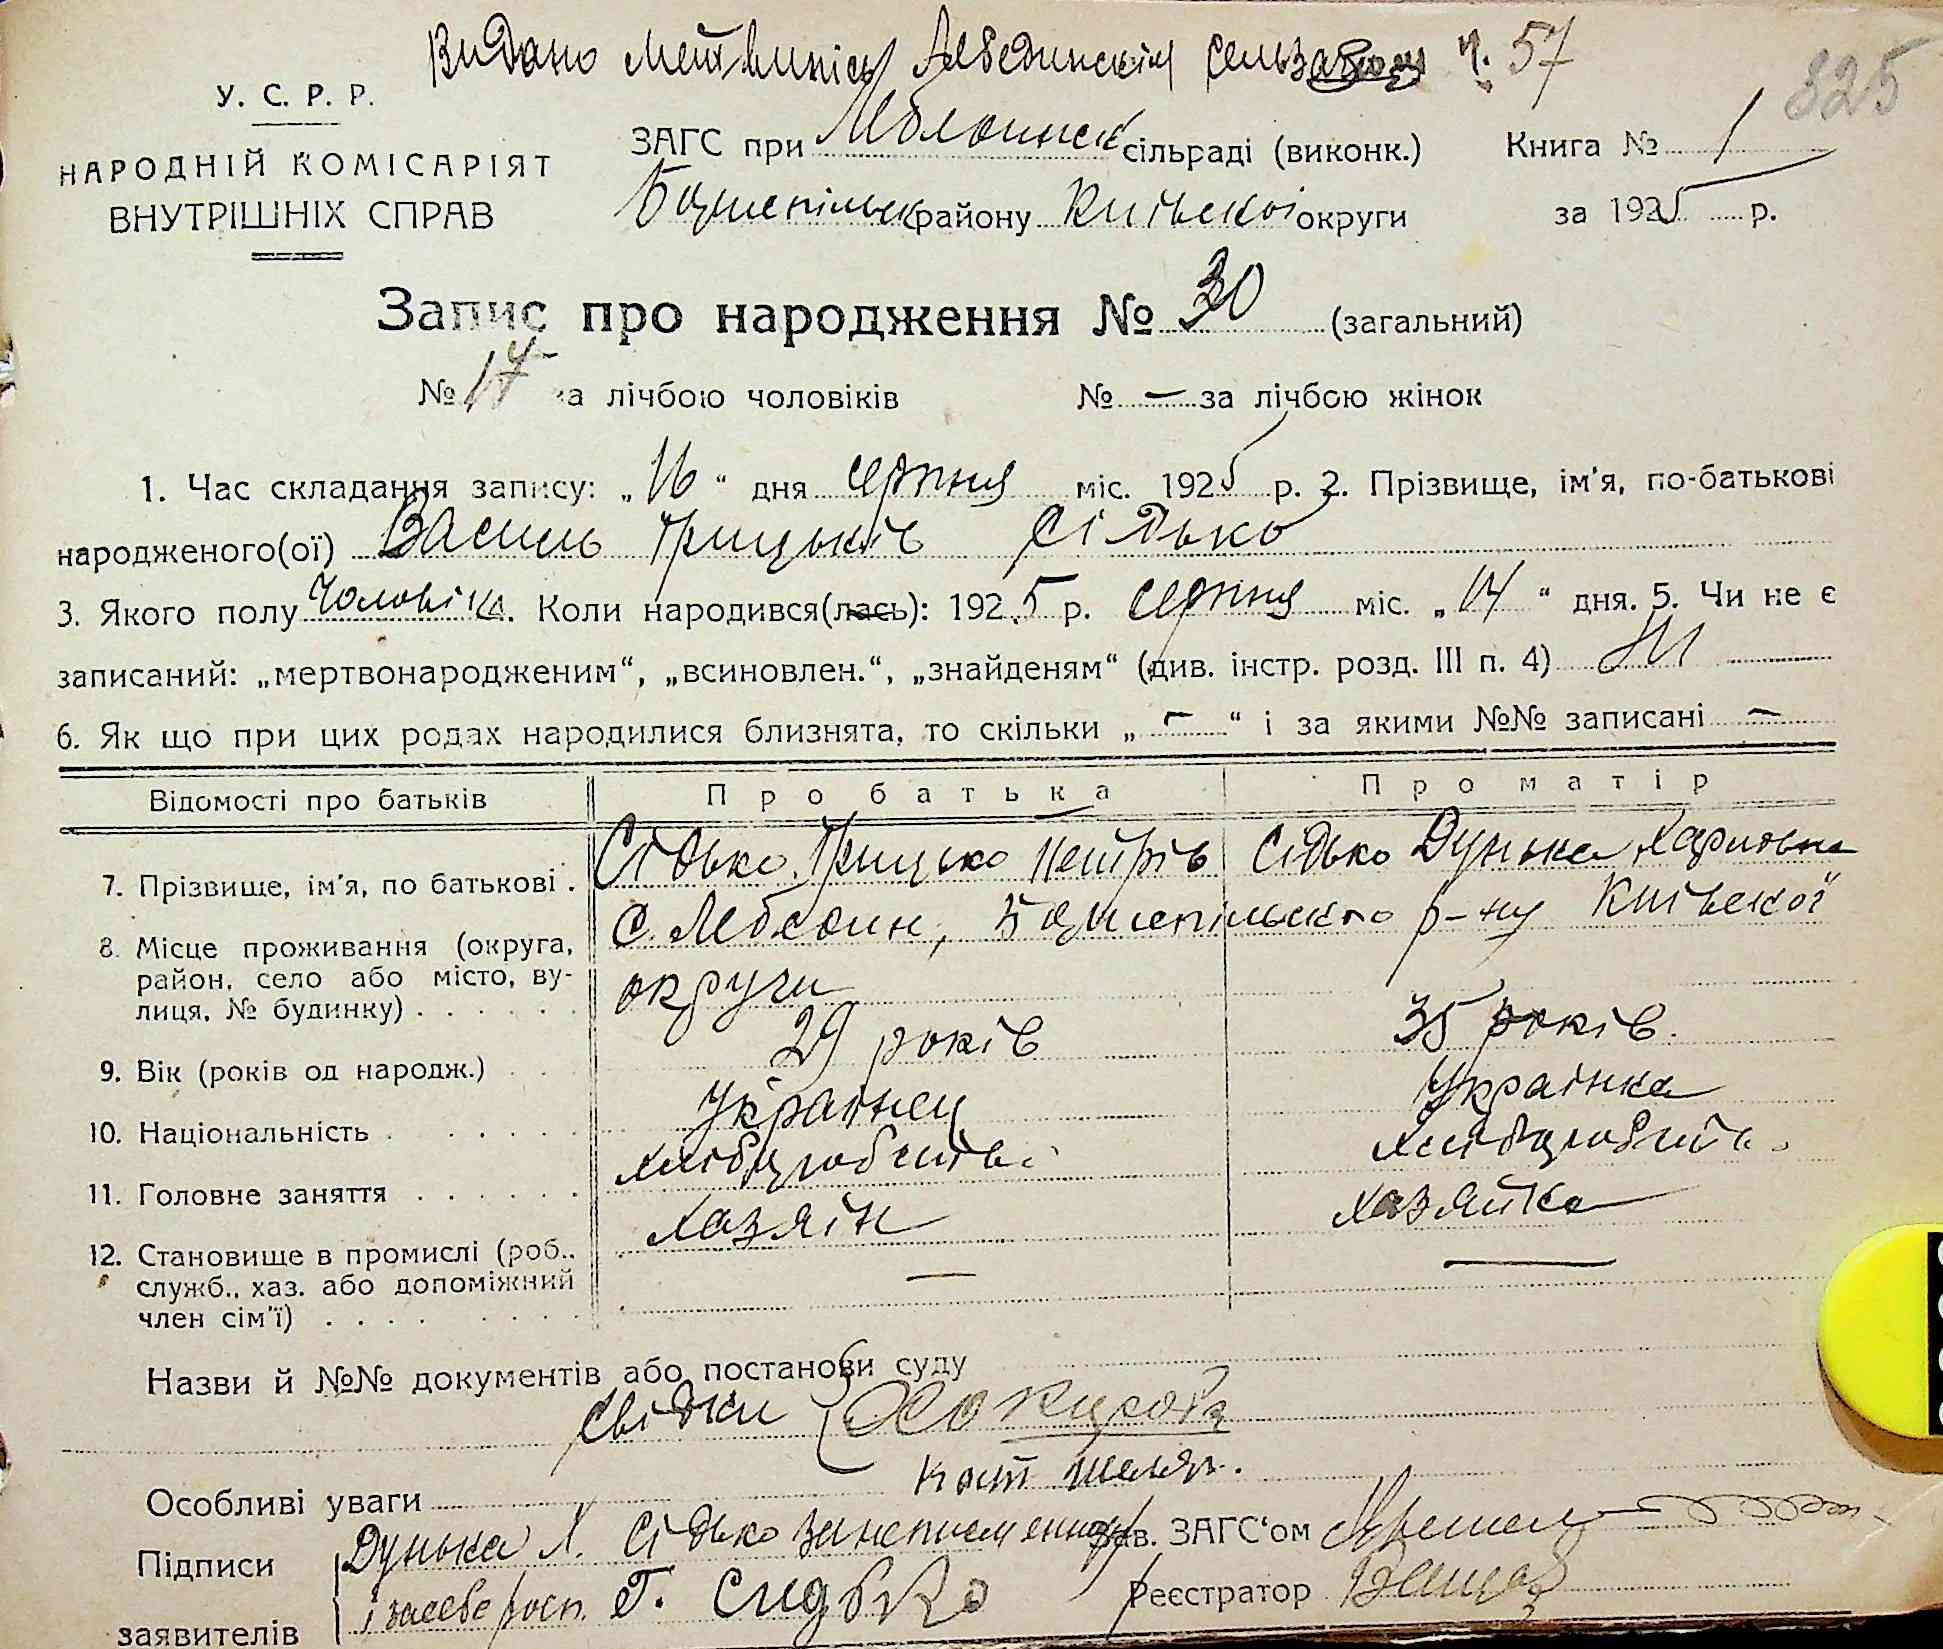 Видано Лебединским ч. 57
325
У. С. Р. Р.
НАРОДНІЙ КОМІСАРІЯТ
ВНУТРІШНІХ СПРАВ
ЗАГС при сільраді (виконк.)
Бориспільск району Київскої округи
Книга № 1
за 1925 р.
Запис про народження № 30 (загальний)
№ 17 за лічбою чоловіків № — за лічбою жінок
1. Час складання запису: „16“ дня серпня міс. 1925 р. 2. Прізвище, ім'я, по-батькові
народженого(ої) Василь Грицьків Сідько
3. Якого полу Чоловіка. Коли народився(лась): 1925 р. серпня міс. „14“ дня. 5. Чи не є
записаний: „мертвонародженим“, „всиновлен.“, „знайденям“ (див. інстр. розд. III п. 4) Ні
6. Як що при цих родах народилися близнята, то скільки „—“ і за якими №№ записані —
Відомості про батьків Про батька Про матір
7. Прізвище, ім'я, по батькові . Сідько Грицько Петрів Сідько Дунька
8. Місце проживання (округа, с. Лебедин, Бориспільско р-ну Київскої
район, село або місто, ву- округи
лиця, № будинку) . . . . . .
9. Вік (років од народж.) . . 29 років 35 років.
10. Національність . . . . . Українец Українка
11. Головне заняття . . . . . .
12. Становище в промислі (роб., Хазяін Хазяйка
служб., хаз. або допоміжний — —
член сім'ї) . . . . . . . .
Назви й №№ документів або постанови суду
Свідки
Особливі уваги
Підписи Дунька Х. Сідько Зав. ЗАГС'ом
заявителів і за себе росп. Г. Сидько Реєстратор